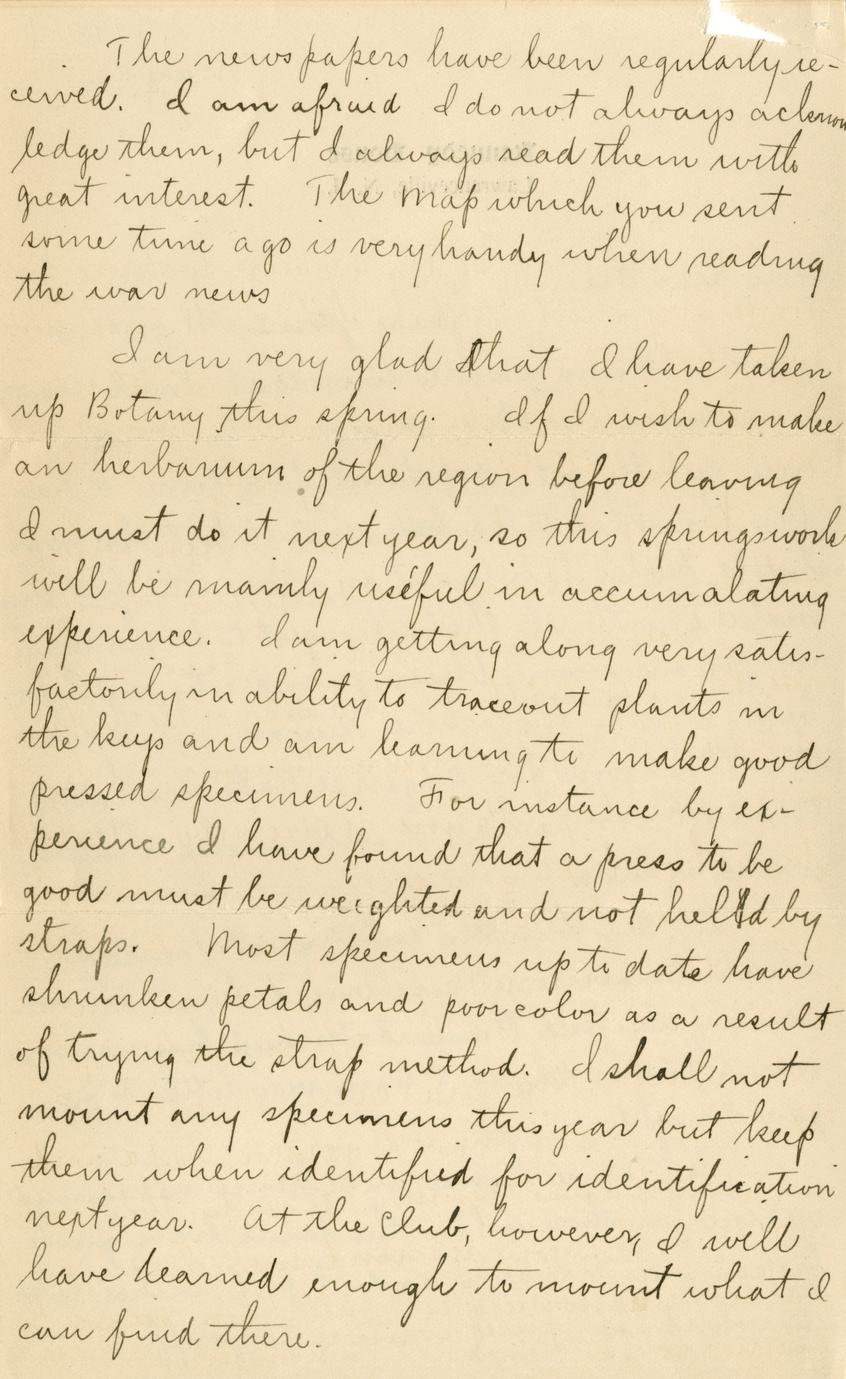 The newspapers have been regularly re-
ceived. I am afraid I do not always acknow
ledge them, but I always read them with
great interest. The map which you sent
some time ago is very handy when reading
the war news
I am very glad that I have taken
up Botany this spring. If I wish to make
an herbarium of the region before leaving
I must do it next year, so this springs work
will be mainly useful in accumalating
experience. I am getting along very satis-
factorily in ability to trace out plants in
the keys and am learning to make good
pressed specimens. For instance by ex-
perience I have found that a press to be
good must be weighted and not held by
straps. Most specimens up to date have
shrunken petals and poor color as a result
of trying the strap method. I shall not
mount any specimens this year but keep
them when identified for identification
next year. At the Club, however, I will
have learned enough to mount what I
can find there.